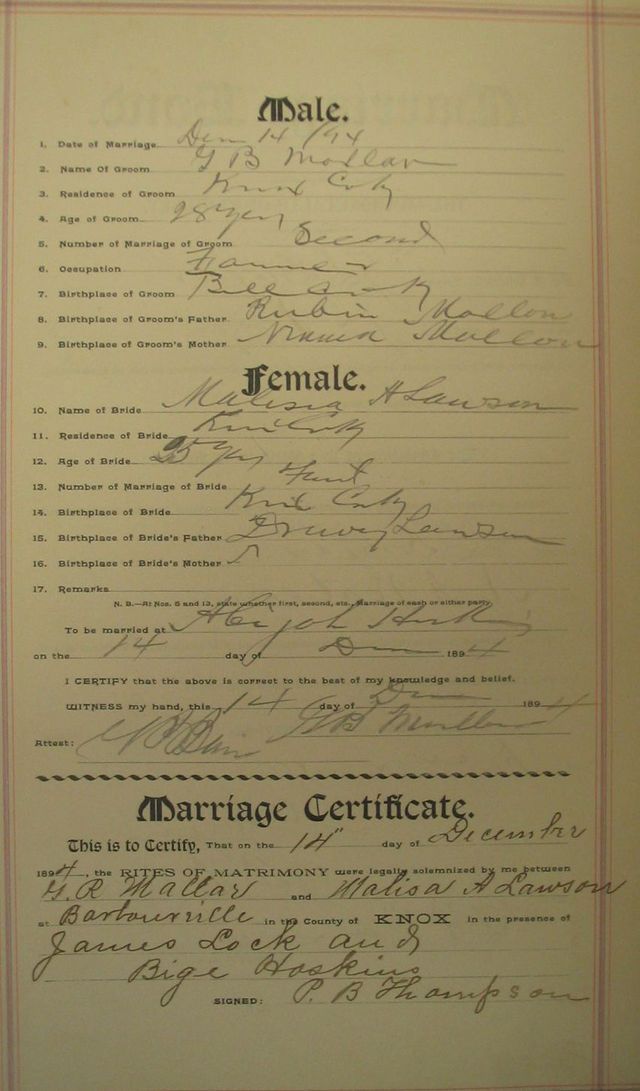 Male.
1. Date of Marriage Dem 14 /94
2. Name Of Groom G B Mollar
3. Residence of Groom Knox Co Ky
4. Age of Groom 28 yer
5. Number of Marriage of Groom Second
6. Occupation Farmer
7. Birthplace of Groom Bell Co Ky
8. Birthplace of Groom's Father Rubin Mollon
9. Birthplace of Groom's Mother Mollon
Female.
10. Name of Bride Malisia A Lawson
11. Residence of Bride Knox Co Ky
12. Age of Bride 25 yer
13. Number of Marriage of Bride First
14. Birthplace of Bride Knox Co Ky
15. Birthplace of Bride's Father Druwey Lawson
16. Birthplace of Bride's Mother
17. Remarks
N. B.—At Nos. 5 and 13, state whether first, second, etc., Marriage of each or either party
To be married at Abijah Hoskins
on the 14 day of Dem 1894
I CERTIFY that the above is correct to the best of my knowledge and belief.
WITNESS my hand, this 14 day of Dem 1894
G B Mollar
Attest:
Marriage Certificate.
This is to Certify, That on the 14" day of December
1894, the RITES OF MATRIMONY were legally solemnized by me between
G. R Mallar and Malisa A Lawson
at Barbourville in the County of KNOX in the presence of
James Lock and
Bige Hoskins
SIGNED: P. B Thompson